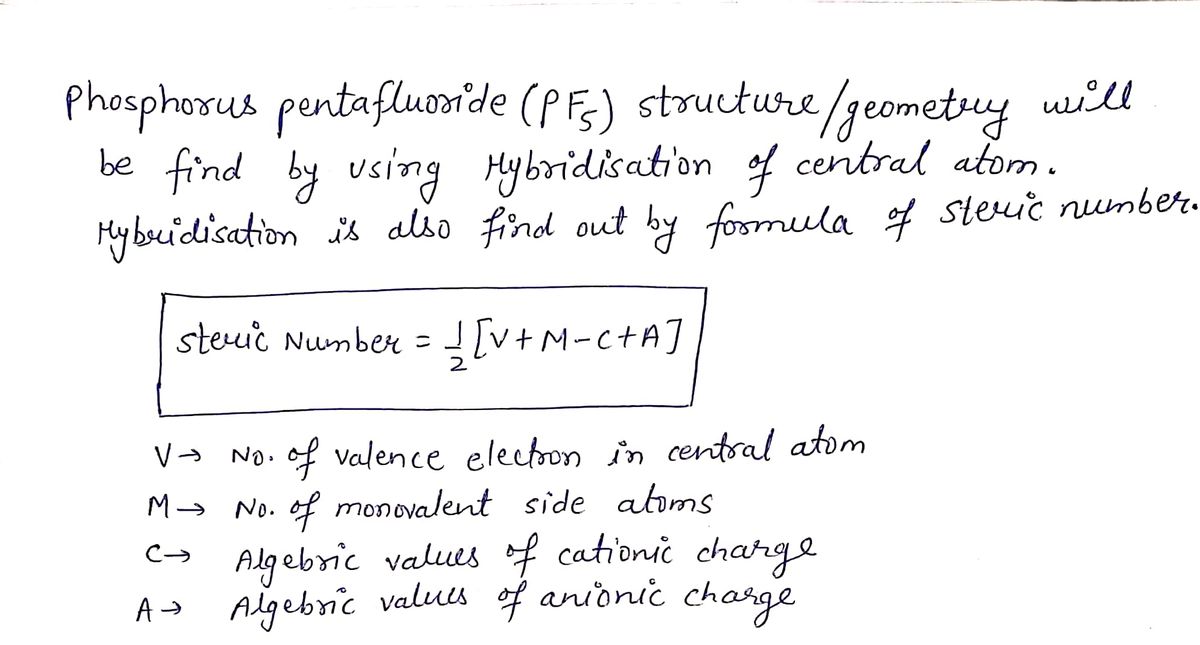 Phosphorus pentafluoride (PF5) structure/geometry will
be find by using Hybridisation of central atom.
Hybridisation is also find out by formula of steric number.
steric Number = 1/2 [V+M-C+A]
V→ No. of valence electron in central atom
M→ No. of monovalent side atoms
C→ Algebric values of cationic charge
A→ Algebric values of anionic charge